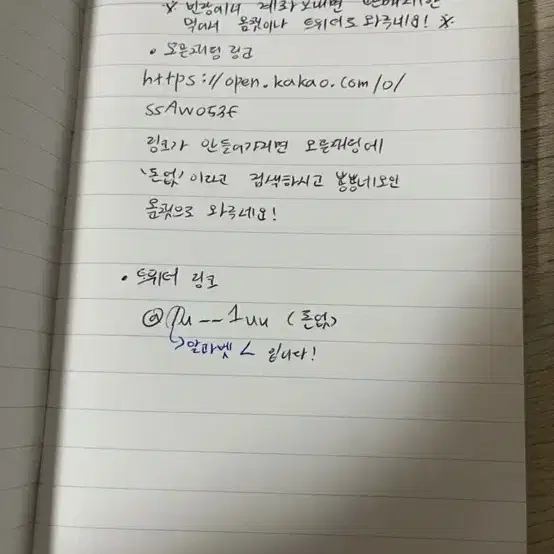 ※ 번장에서 계좌 보내면
먹어서 옾챗이나 트위터로 와주세요! ※
• 오픈채팅 링크
https://open.kakao.com/o/
ssAW053f
링크가 안들어가지면 오픈채팅에
'돈없' 이라고 검색하시고 뿡뿡네오인
옾챗으로 와주세요!
• 트위터 링크
@lu__1uu (돈없)
→알파벳 L 입니다!